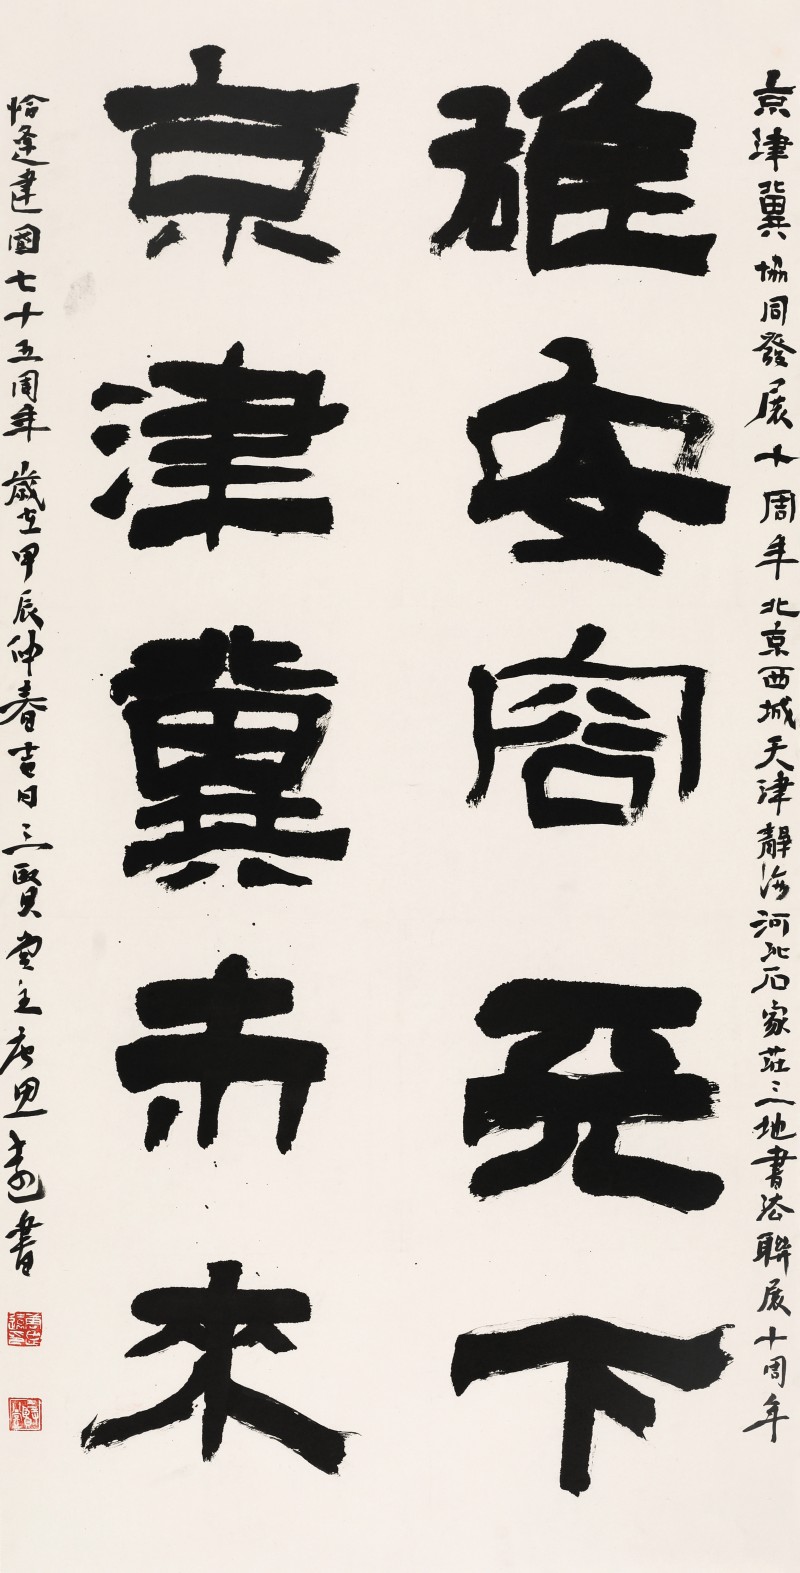 京津冀協同發展十周年北京西城天津靜海河北石家莊三地書法聯展十周年
雄安容天下
京津冀未來
恰逢建國七十五周年歲在甲辰仲春吉日三賢堂主唐思遠書